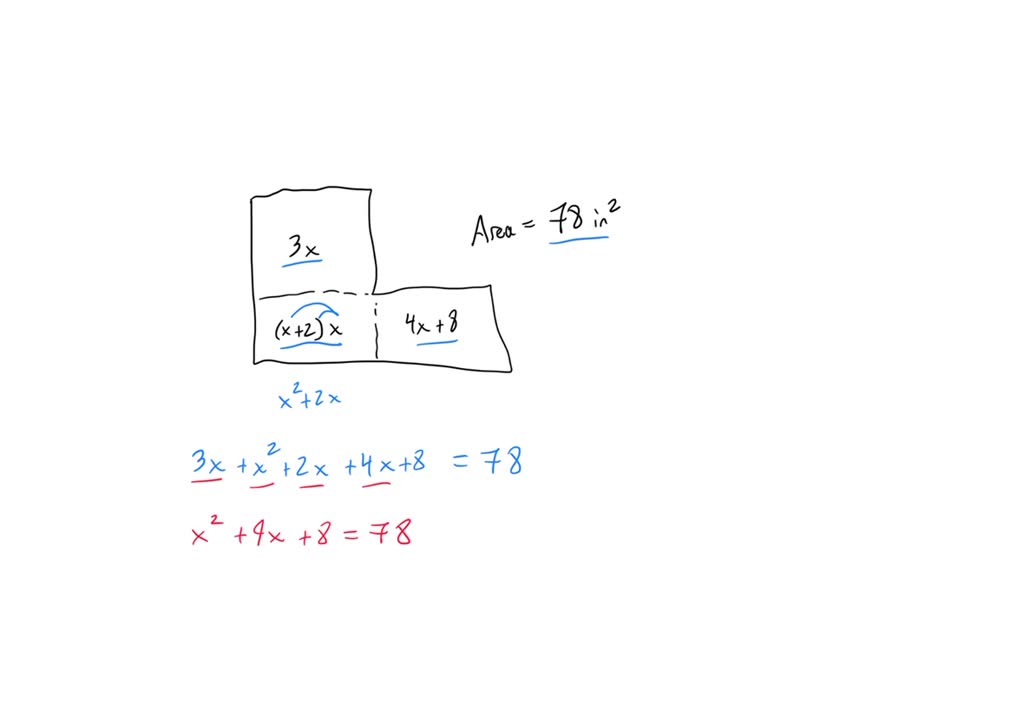 3x
Area = 78 in²
(x+2)x
4x+8
x²+2x
3x +x²+2x +4x+8 = 78
x² +9x +8 = 78